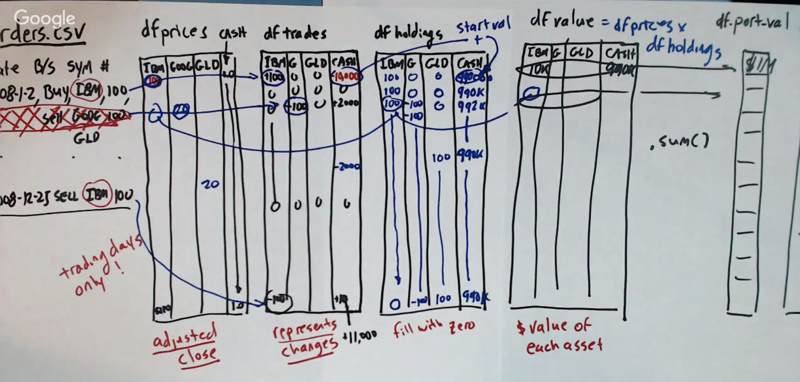 Google
rders.csv
ate B/S sym #
08-1-2, Buy, IBM, 100,
sell GOOG 100
GLD
.
08-12-25 SELL IBM 100
trading days
only!
df prices CASH
IBM GOOG GLD
1.0
20
1.0
adjusted
close
df trades
IBM G GLD CASH
+100 0 0 -10,000
0 0 0
0 -100 0 +2000
-2000
0 0 0 0
-100
+11,000
represents
changes
df holdings
start val
+
IBM G GLD CASH
100 0 0
100 0 0 990K
100 -100 0 992K
-100
100 990K
0 -100 100 990K
fill with zero
df value = df prices x
df holdings
IBM G GLD CASH
10K 990K
$ value of
each asset
.sum()
df.port-val
$1M